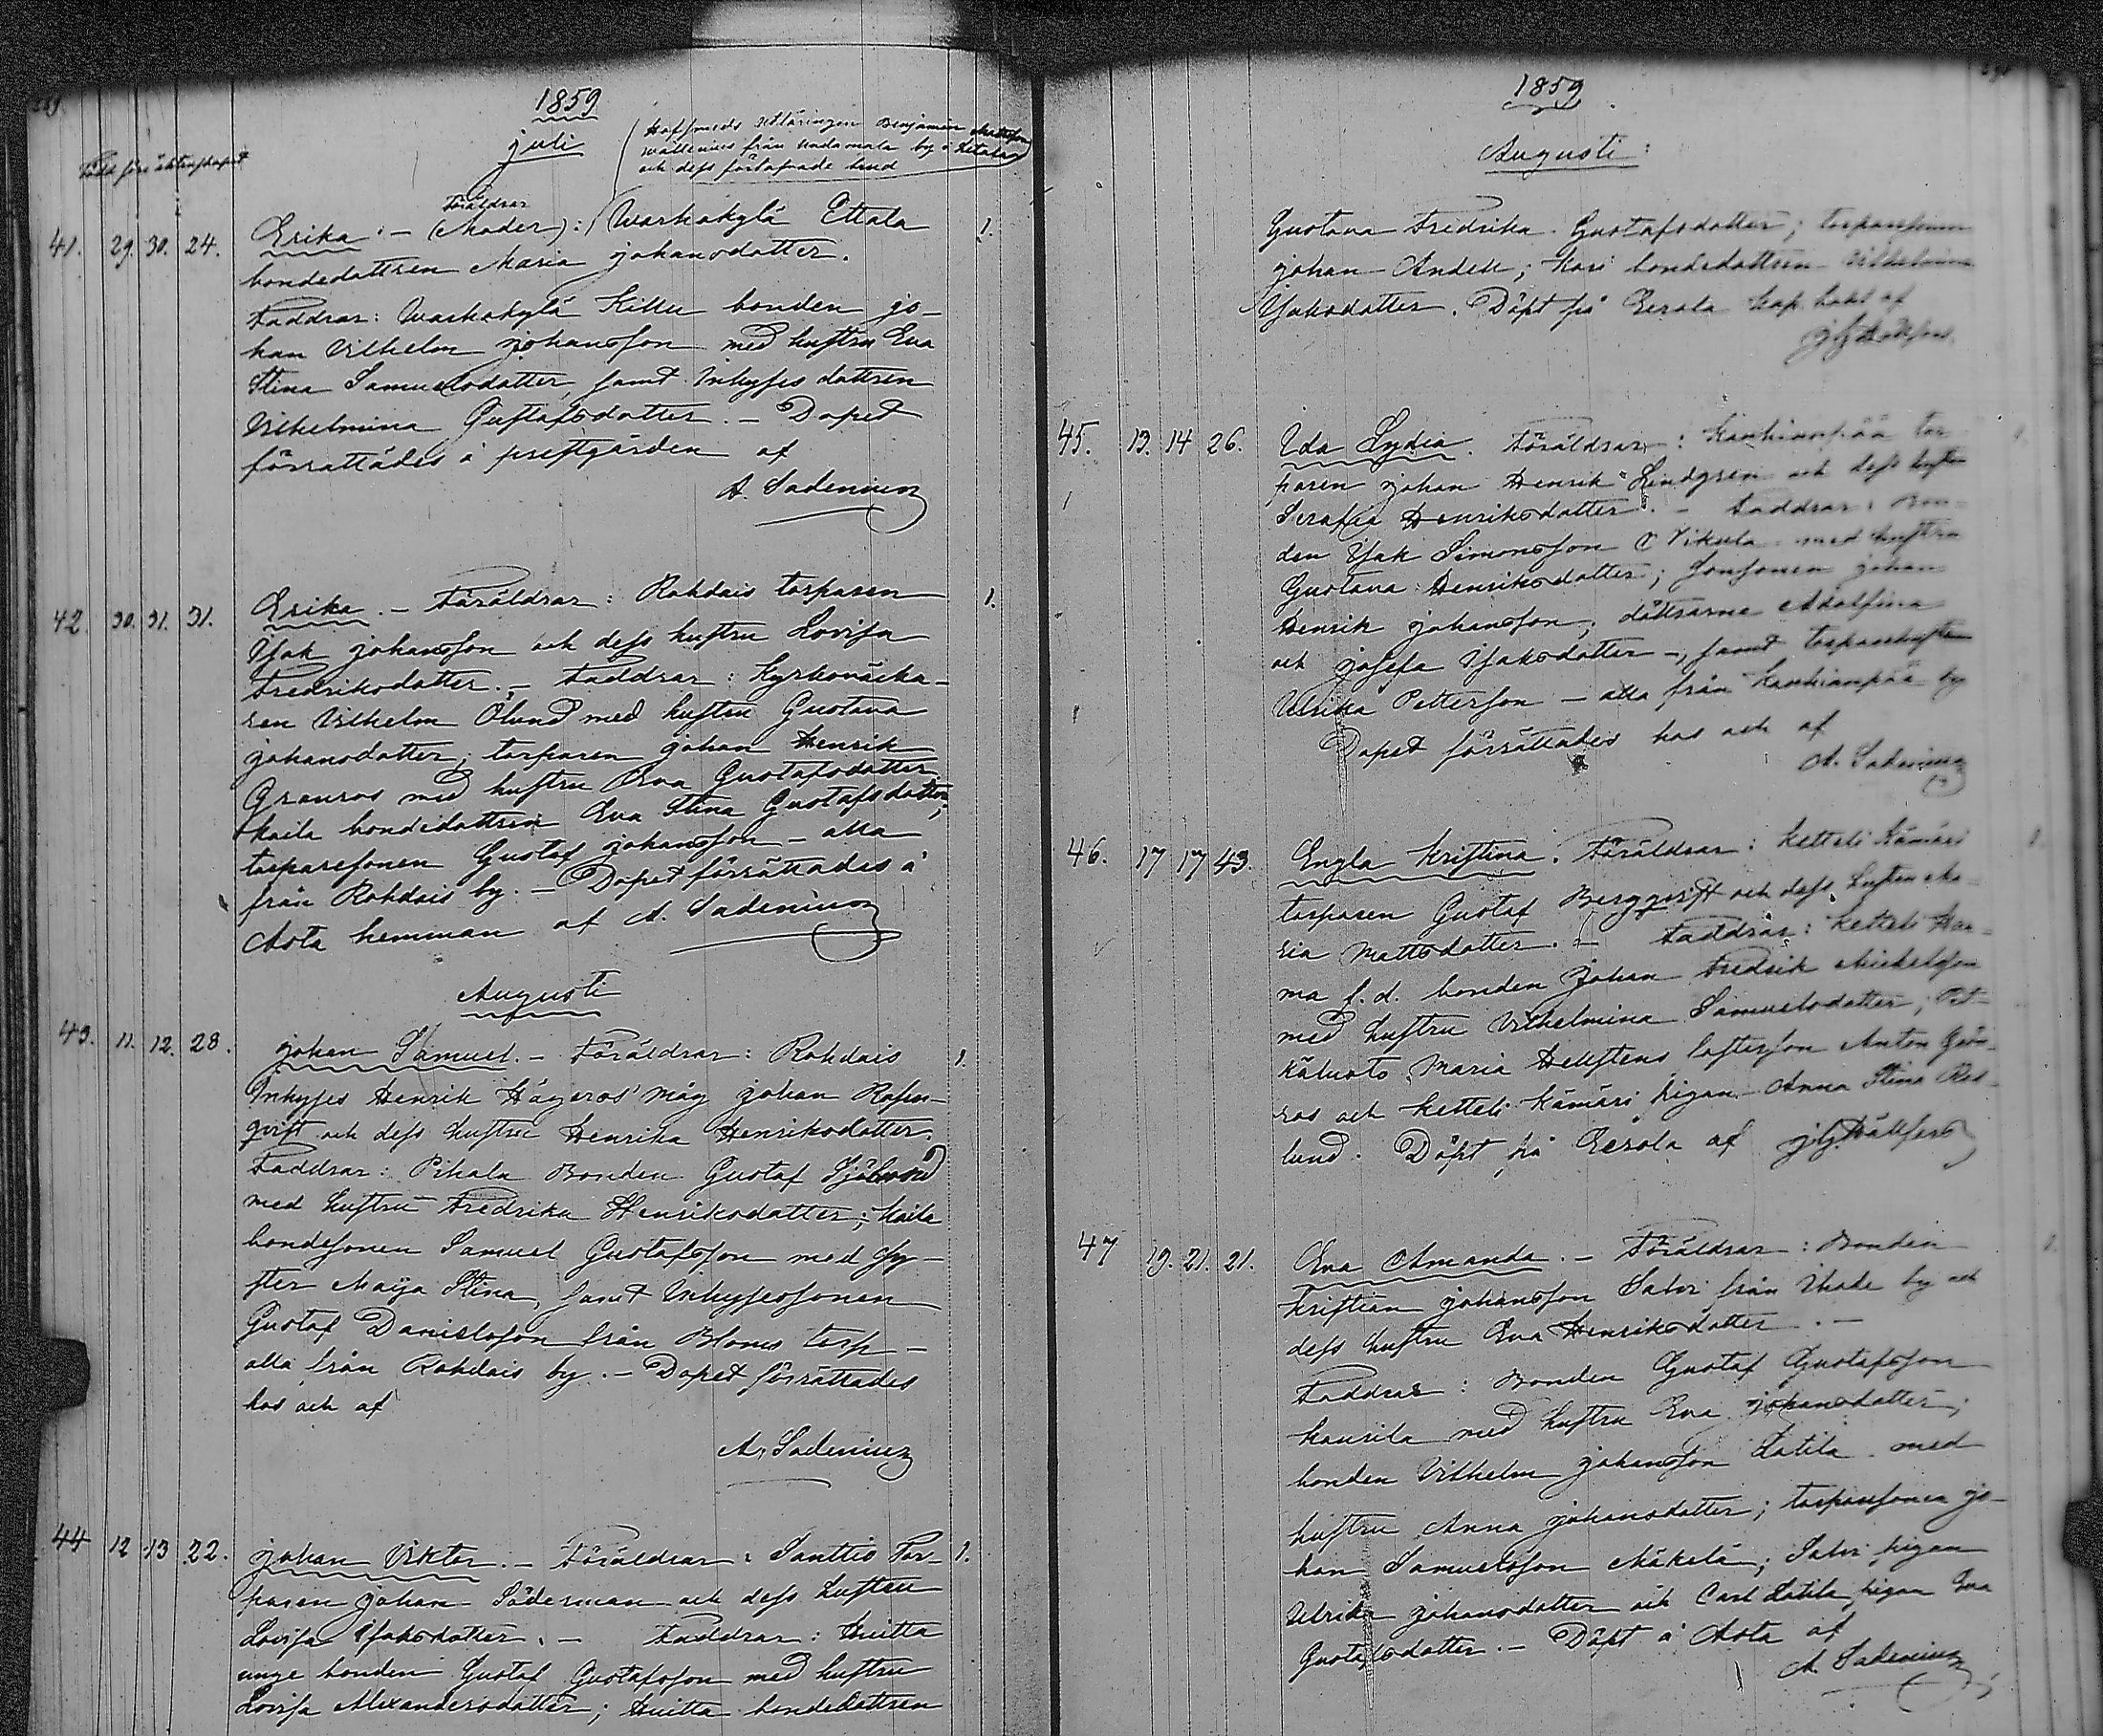 1859
juli
och dess förlofvade brud
Född före äktenskapet
Föräldrar
41. 29. 30. 24. Erika. – (Moder): Warhokylä Ettala 1.
bondedottren Maria Johansdotter.
Faddrar: Warhokylä Killu bonden Jo-
han Vilhelm Johansson med hustru Eva
Stina Samuelsdotter, samt Inhyses dottren
Vilhelmina Gustafsdotter. – Dopet
förrättades å prestgården af
A. Sadenius
42. 30. 31. 31. Erika. – Föräldrar: Rohdais torparen 1.
Isak Johansson och dess hustru Lovisa
Fredriksdotter. – Faddrar: Kyrkoväcka-
ren Vilhelm Ölund med hustru Gustava
Johansdotter; torparen Johan Henrik
Granros med hustru Eva Gustafsdotter,
Kaila bondedottren Eva Stina Gustafsdotter;
torparesonen Gustaf Johansson – alla
från Rohdais by. – Dopet förrättades å
Aota hemman af A. Sadenius
Augusti
43. 11. 12. 28. Johan Samuel. – Föräldrar: Rohdais 1.
Inhyses Henrik Hägeros' måg Johan Rosen-
qvist och dess hustru Henrika Henriksdotter.
Faddrar: Pihala Bonden Gustaf
med hustru Fredrika Henriksdotter; Kaila
bondesonen Samuel Gustafsson med Sy-
ster Maija Stina, samt Inhysessonen
Gustaf Danielsson från Blomus torp –
alla från Rohdais by. – Dopet förrättades
hos och af
A. Sadenius
44 12 13 22. Johan Viktor. – Föräldrar: Santtio Tor- 1.
paren Johan Söderman och dess hustru
Lovisa Isaksdotter. – Faddrar: Huitta
unge bonden Gustaf Gustafsson med hustru
Lovisa Alexandersdotter; Huitta bondedottren
1859
Augusti:
Gustava Fredrika Gustafsdotter; torparesonen
Johan Andell; Kari bondedottren Vilhelmina
Isaksdotter. Döpt på Eerola kap. bohl af
45. 13. 14 26. Ida Lydia. Föräldrar: Kauhianpää tor
paren Johan Henrik Lindgren och dess hustru
Serafia Henriksdotter. – Faddrar: Bon-
den Isak Simonsson C Vikula med hustru
Gustava Henriksdotter; Sonsonen Johan
Henrik Johansson, döttrarne Adolfina
och Josefa Isaksdotter –, samt torparehustrun
Ulrika Pettersson – alla från Kauhianpää by
Dopet förrättades hos och af
A. Sadenius
46. 17 17 43. Engla Kristina. Föräldrar: Ketteli Kämäri 1.
torparen Gustaf Bergqvist och dess hustru Ma-
ria Mattsdotter. – Faddrar: Ketteli
ma f.d. bonden Johan Fredrik Mickelsson
med hustru Vilhelmina Samuelsdotter;
Maria Hellstens losterson Anton Grön-
ros och Ketteli Kämäri pigan Anna Stina
lund. Döpt på Eerola af
47 19. 21. 21. Eva Amanda. – Föräldrar: Bonden 1.
Kristian Johansson Salvi från Ihode by och
dess hustru Eva Henriksdotter. –
Faddrar: Bonden Gustaf Gustafsson
Kaurila med hustru Eva Johansdotter;
bonden Vilhelm Johansson Latila med
hustru Anna Johansdotter; torparesonen Jo-
han Samuelsson Mäkelä; Salvi pigan
Ulrika Johansdotter och Carl Latila pigan Eva
Gustafsdotter. – Döpt å Aota af
A. Sadenius